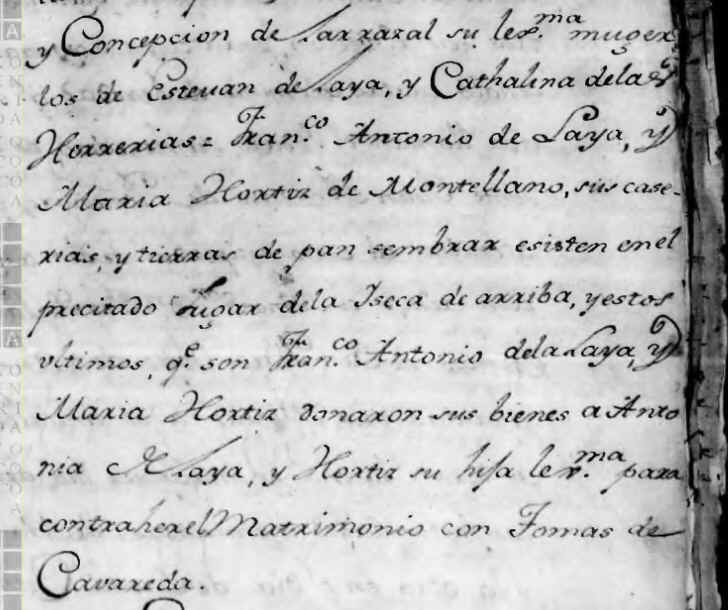 y Concepcion de Larrazal su lex.ma muger
los de Estevan de Laya, y Cathalina de las
Herrerias = Fran.co Antonio de Laya, y
Maria Hortiz de Montellano, sus case-
rias, y tierras de pan sembrar esisten en el
precitado Lugar dela Iseca de arriba, y estos
vltimos, q.e son Fran.co Antonio dela Laya, y
Maria Hortiz donaron sus bienes a Anto
nia de Laya, y Hortiz su hija lex.ma para
contraher el Matrimonio con Tomas de
Cavareda.